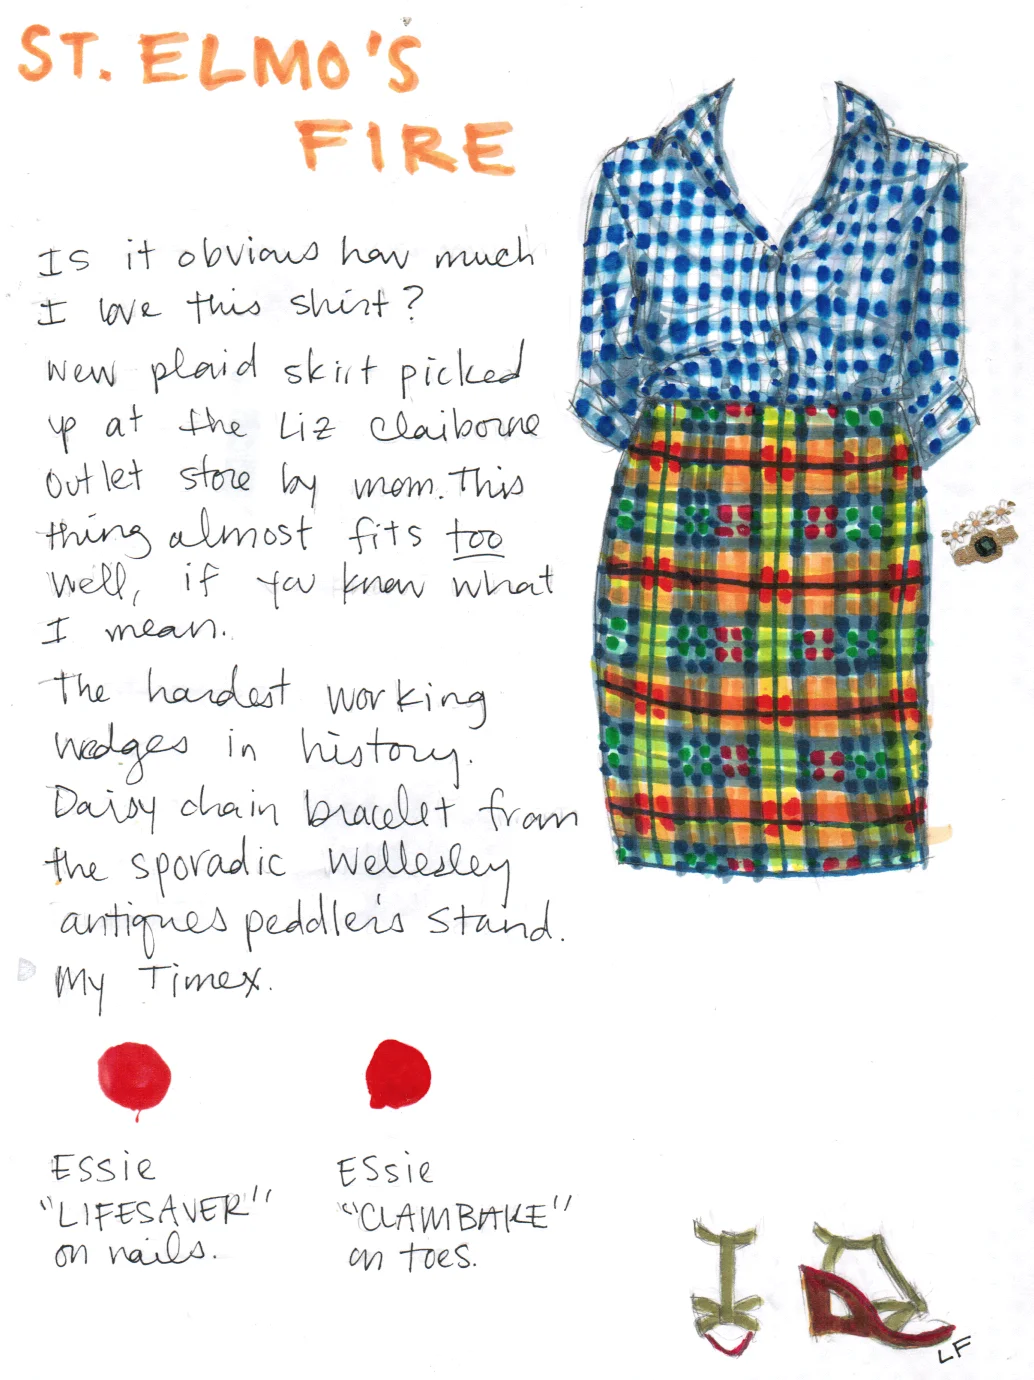 ST. ELMO'S
FIRE
Is it obvious how much
I love this shirt?
New plaid skirt picked
up at the Liz Claiborne
Outlet store by mom. This
thing almost fits too
well, if you know what
I mean.
The hardest working
wedges in history.
Daisy chain bracelet from
the sporadic Wellesley
antiques peddler's stand.
My Timex.
Essie
"LIFESAVER"
on nails.
Essie
"CLAMBAKE"
on toes.
LF